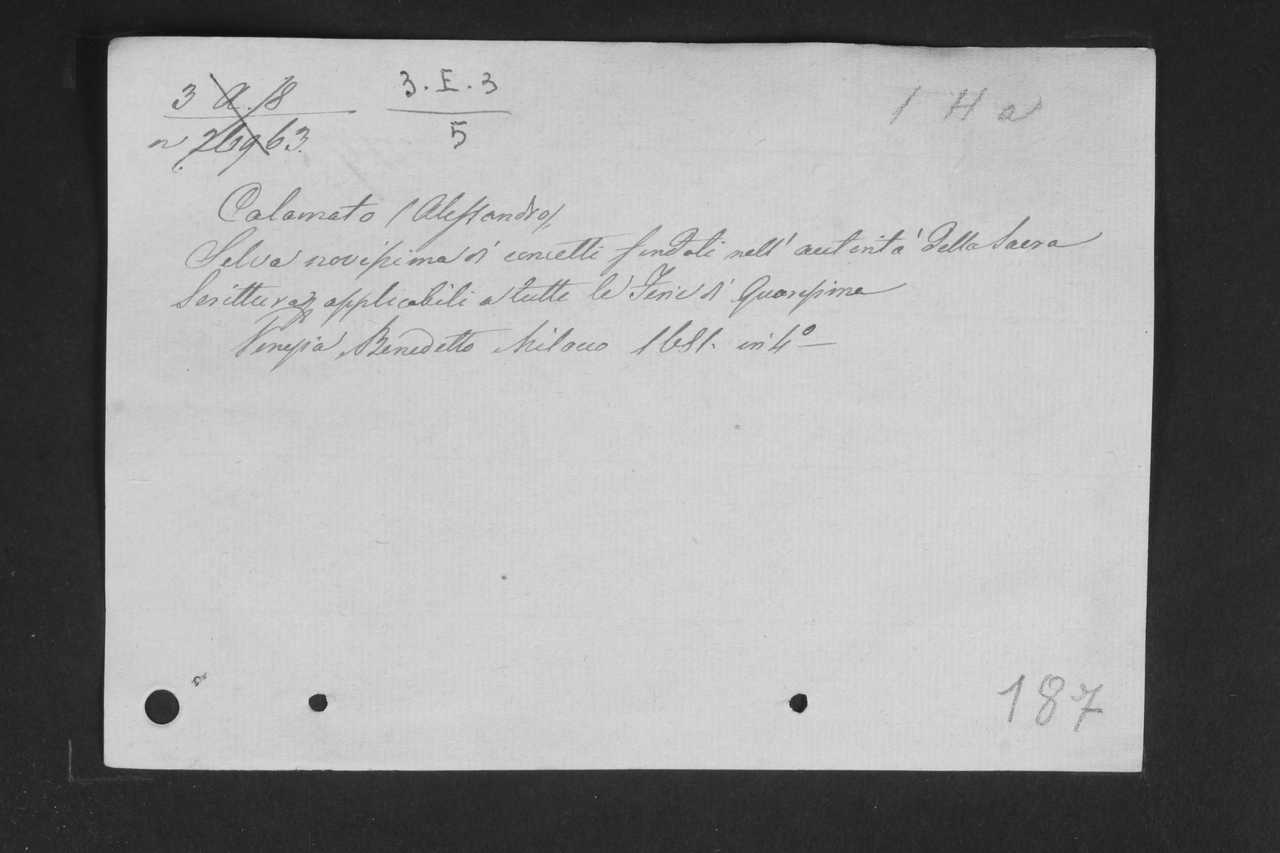 3 a. 18
n. 26963.
3. E. 3
5
1 H a
Calamato (Alessandro)
Selva novissima di concetti fondati nell' autorità della Sacra
Scrittura, applicabili a tutte le Ferie di Quaresima
Venezia, Benedetto Milocco 1681. in 4°
187